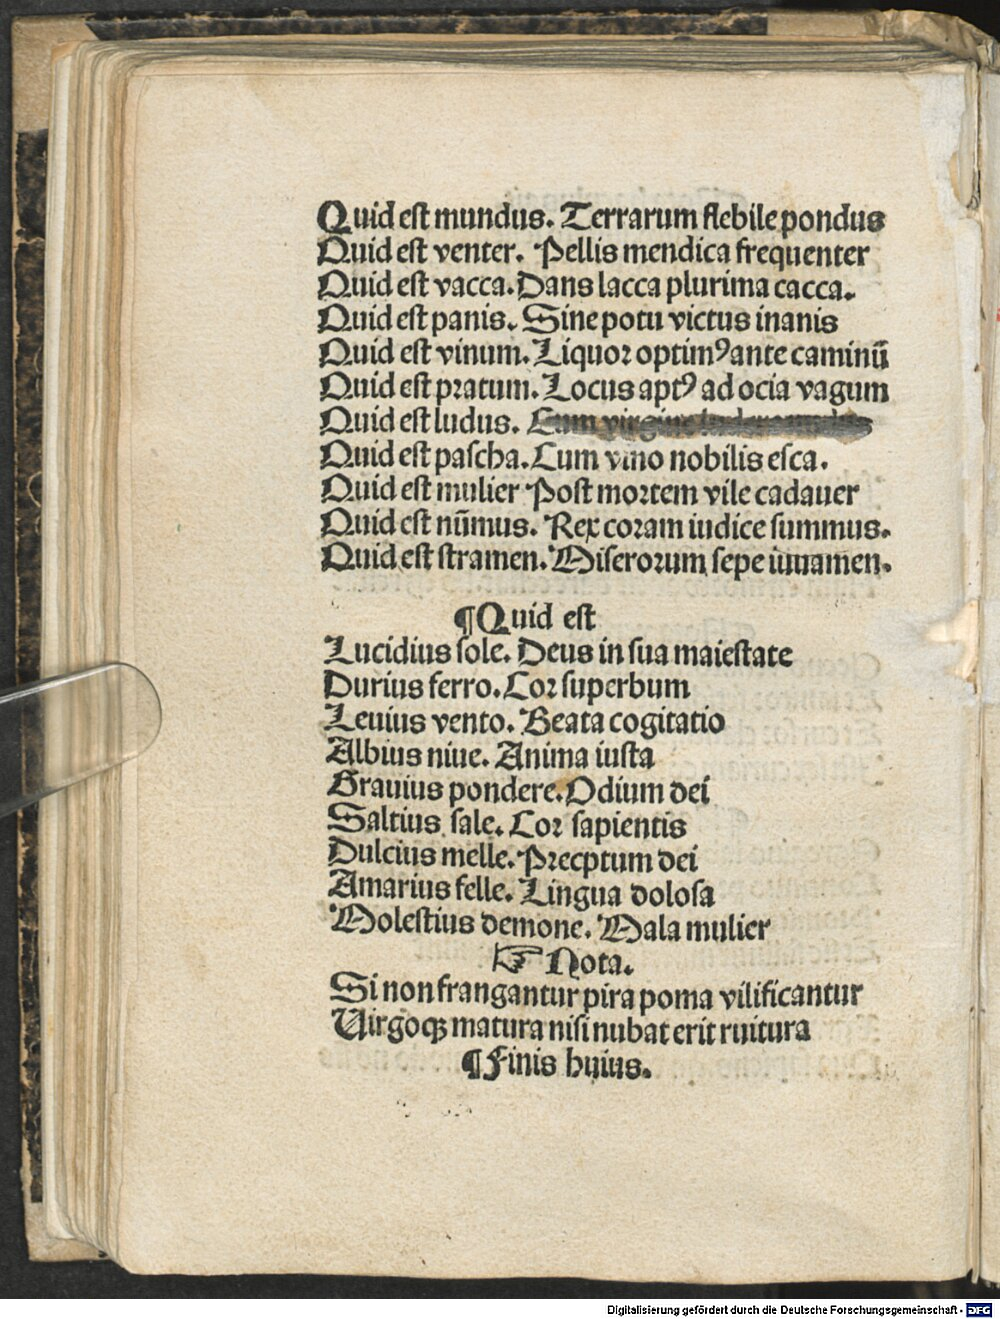 Quid est mundus. Terrarum flebile pondus
Quid est venter. Pellis mendica frequenter
Quid est vacca. Dans lacca plurima cacca.
Quid est panis. Sine potu victus inanis
Quid est vinum. Liquor optimꝰ ante caminū
Quid est pratum. Locus aptꝰ ad ocia vagum
Quid est ludus. Cum virgine ludere nudus
Quid est pascha. Cum vino nobilis esca.
Quid est mulier Post mortem vile cadauer
Quid est nūmus. Rex coram iudice summus.
Quid est stramen. Miserorum sepe iuuamen.
¶ Quid est
Lucidius sole. Deus in sua maiestate
Durius ferro. Cor superbum
Leuius vento. Beata cogitatio
Albius niue. Anima iusta
Grauius pondere. Odium dei
Saltius sale. Cor sapientis
Dulcius melle. Precptum dei
Amarius felle. Lingua dolosa
Molestius demone. Mala mulier
☞ Nota.
Si non frangantur pira poma vilificantur
Virgoqꝫ matura nisi nubat erit ruitura
¶ Finis huius.
Digitalisierung gefördert durch die Deutsche Forschungsgemeinschaft - DFG